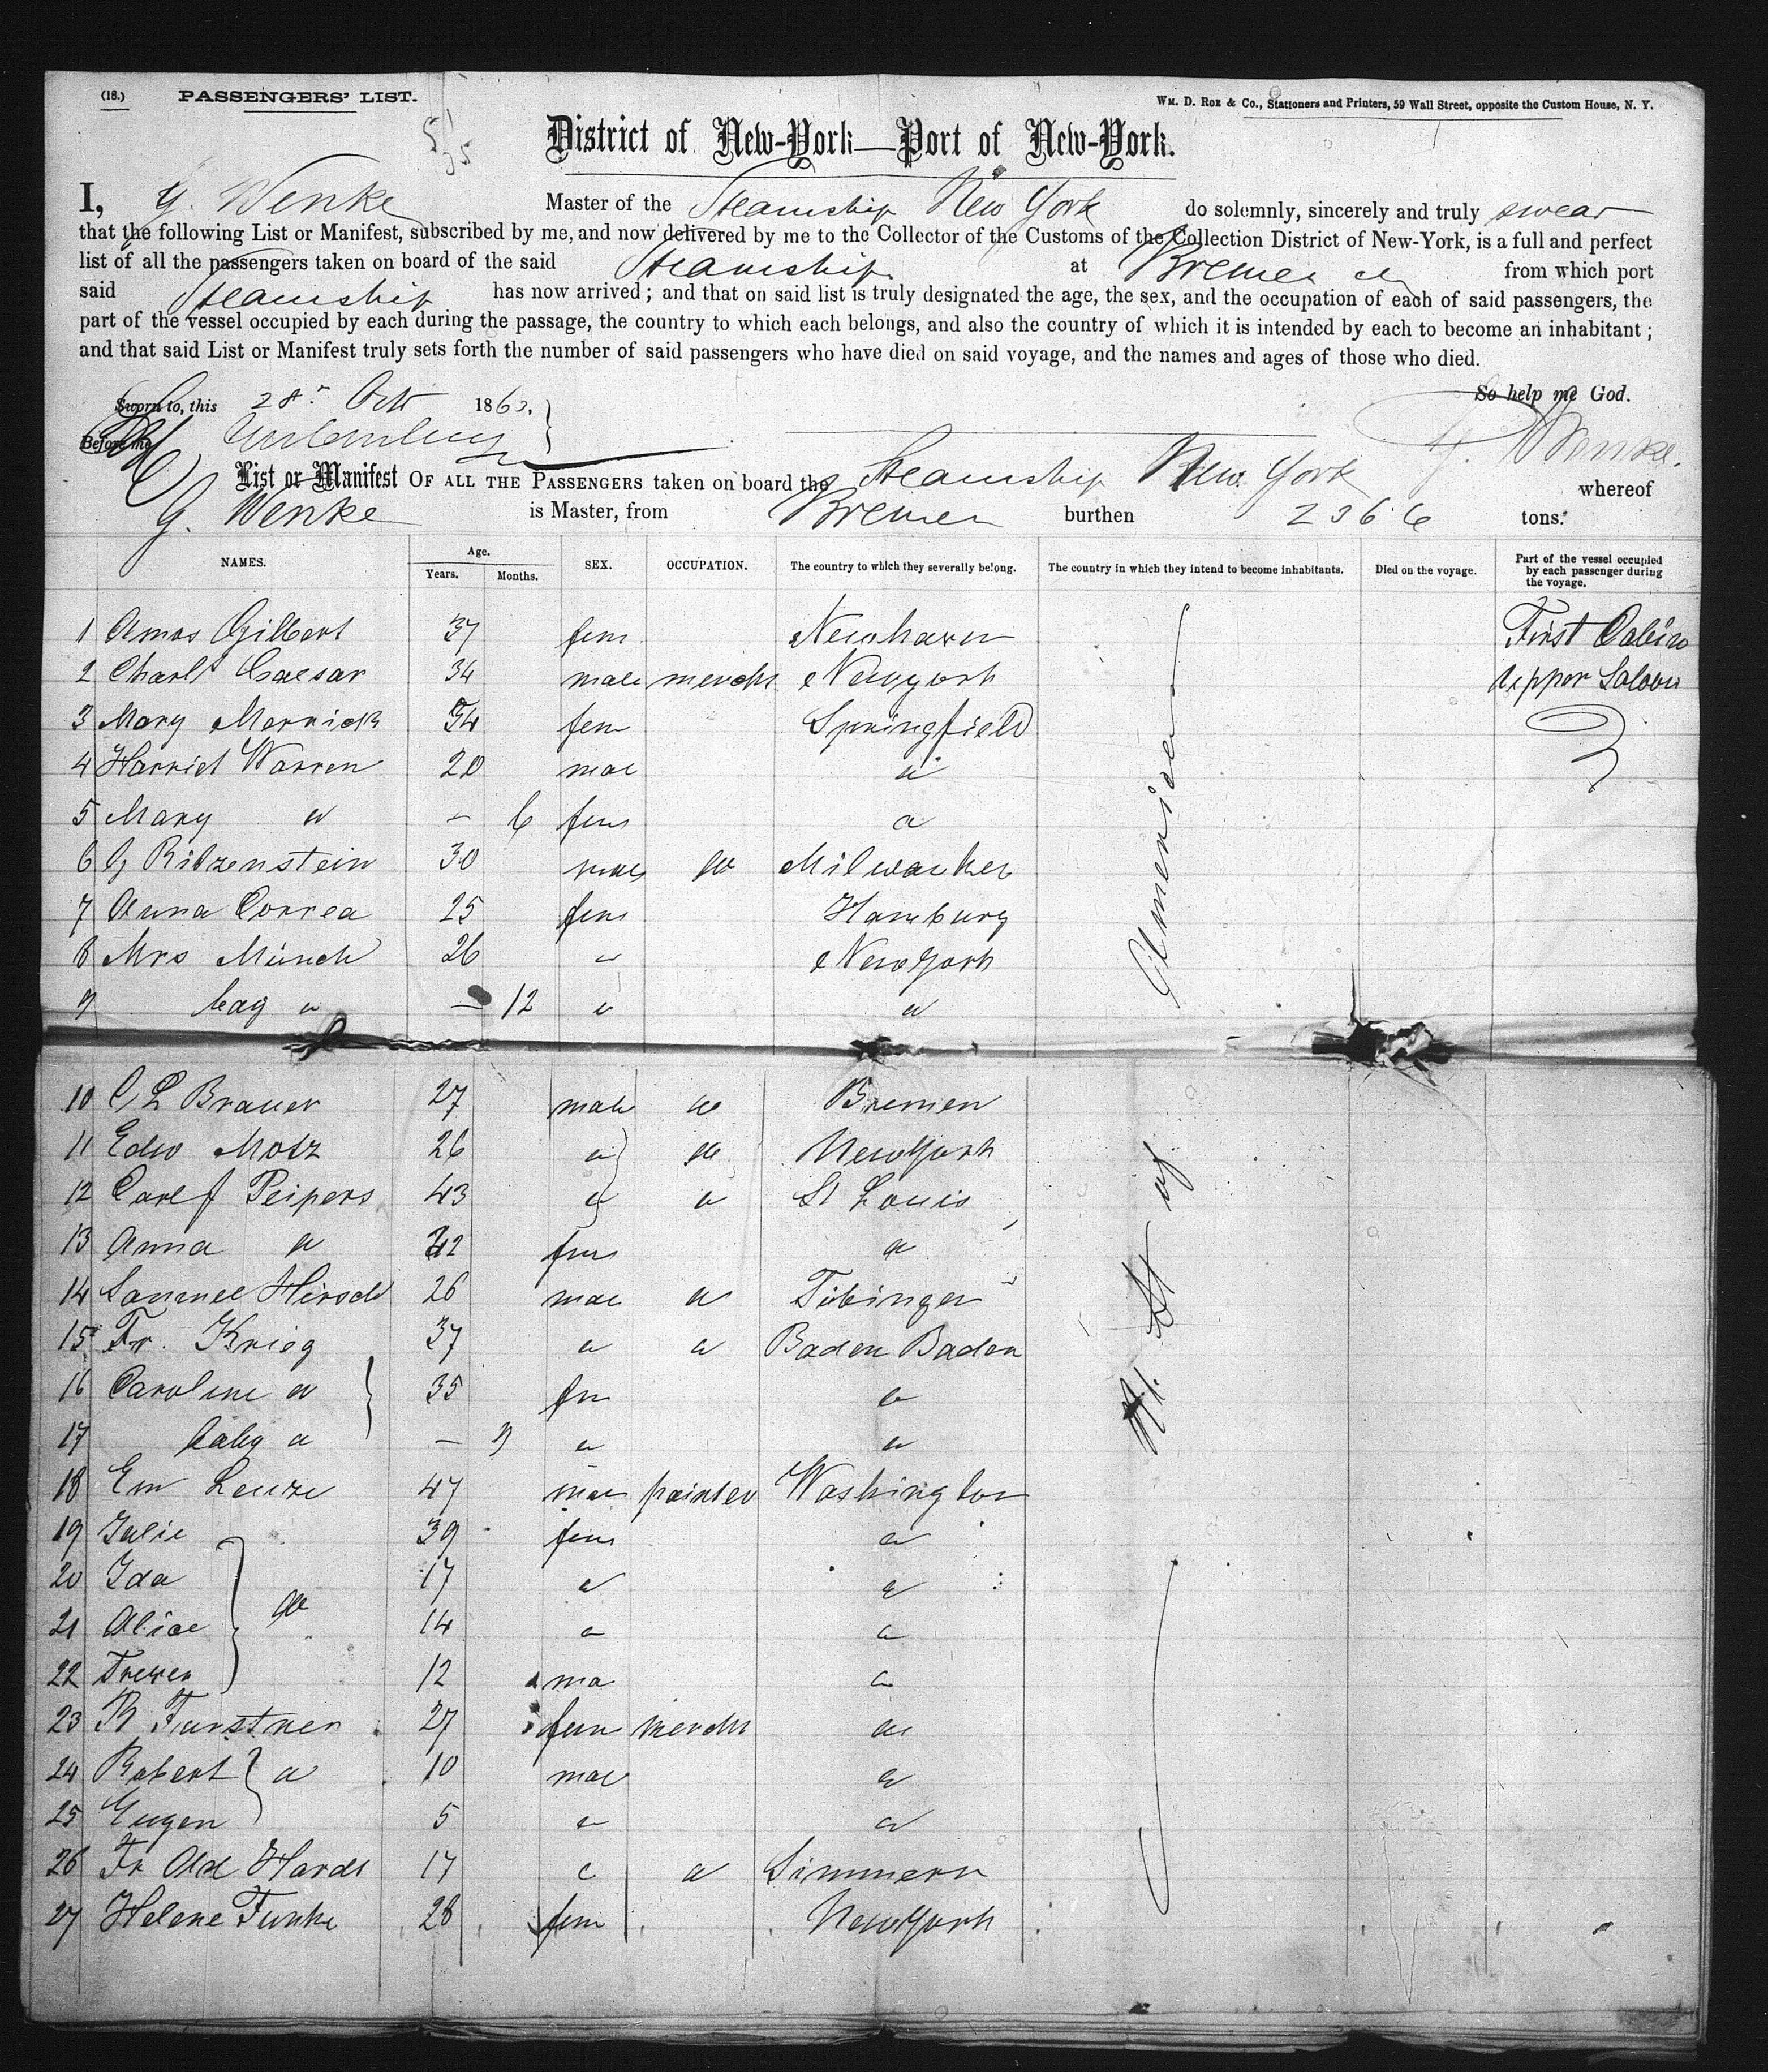 (18.) PASSENGERS' LIST. Wm. D. Roe & Co., Stationers and Printers, 59 Wall Street, opposite the Custom House, N. Y.
District of New-York—Port of New-York.
I, G. Wenke Master of the Steamship New York do solemnly, sincerely and truly swear
that the following List or Manifest, subscribed by me, and now delivered by me to the Collector of the Customs of the Collection District of New-York, is a full and perfect
list of all the passengers taken on board of the said Steamship at Bremen from which port
said Steamship has now arrived; and that on said list is truly designated the age, the sex, and the occupation of each of said passengers, the
part of the vessel occupied by each during the passage, the country to which each belongs, and also the country of which it is intended by each to become an inhabitant;
and that said List or Manifest truly sets forth the number of said passengers who have died on said voyage, and the names and ages of those who died.
So help me God.
Sworn to, this 28 Oct 186
Before me G. Wenke.
List or Manifest OF ALL THE PASSENGERS taken on board the Steamship New York whereof
G. Wenke is Master, from Bremen burthen 2366 tons.
NAMES. Age. Years. Months. SEX. OCCUPATION. The country to which they severally belong. The country in which they intend to become inhabitants. Died on the voyage. Part of the vessel occupied by each passenger during the voyage.
1 Amos Gilbert 37 fem Newhaven First Cabin
2 Charls Caesar 34 male mercht Newyork Upper Saloon
3 Mary Merrick 54 fem Springfield
4 Harriet Warren 20 mae "
5 Mary " – 6 fem "
6 G Ritzenstein 30 male do Milwaukee
7 Anna Correa 25 fem Hamburg
8 Mrs Münch 26 " New York
9 " – 12 " "
10 C L Brauer 27 male do Bremen
11 Edw Motz 26 " do New York
12 Carl f Peipers 43 " " St Louis
13 Anna " fem "
14 Samuel Hirsch 26 mae " Tübingen
15 Fr. Krieg 37 " " Baden Baden
16 Caroline " 35 fm "
17 baby " – " "
18 Em Leuze 47 mae painter Washington
19 Julie 39 fem "
20 Ida 17 " "
21 Alice do 14 " "
22 12 ma "
23 R Furstner 27 fem mercht "
24 Robert " 10 mae "
25 Eugen 5 " "
26 Fr Ad Hardt 17 " " Simmern
27 Helene Funke 28 fem New York